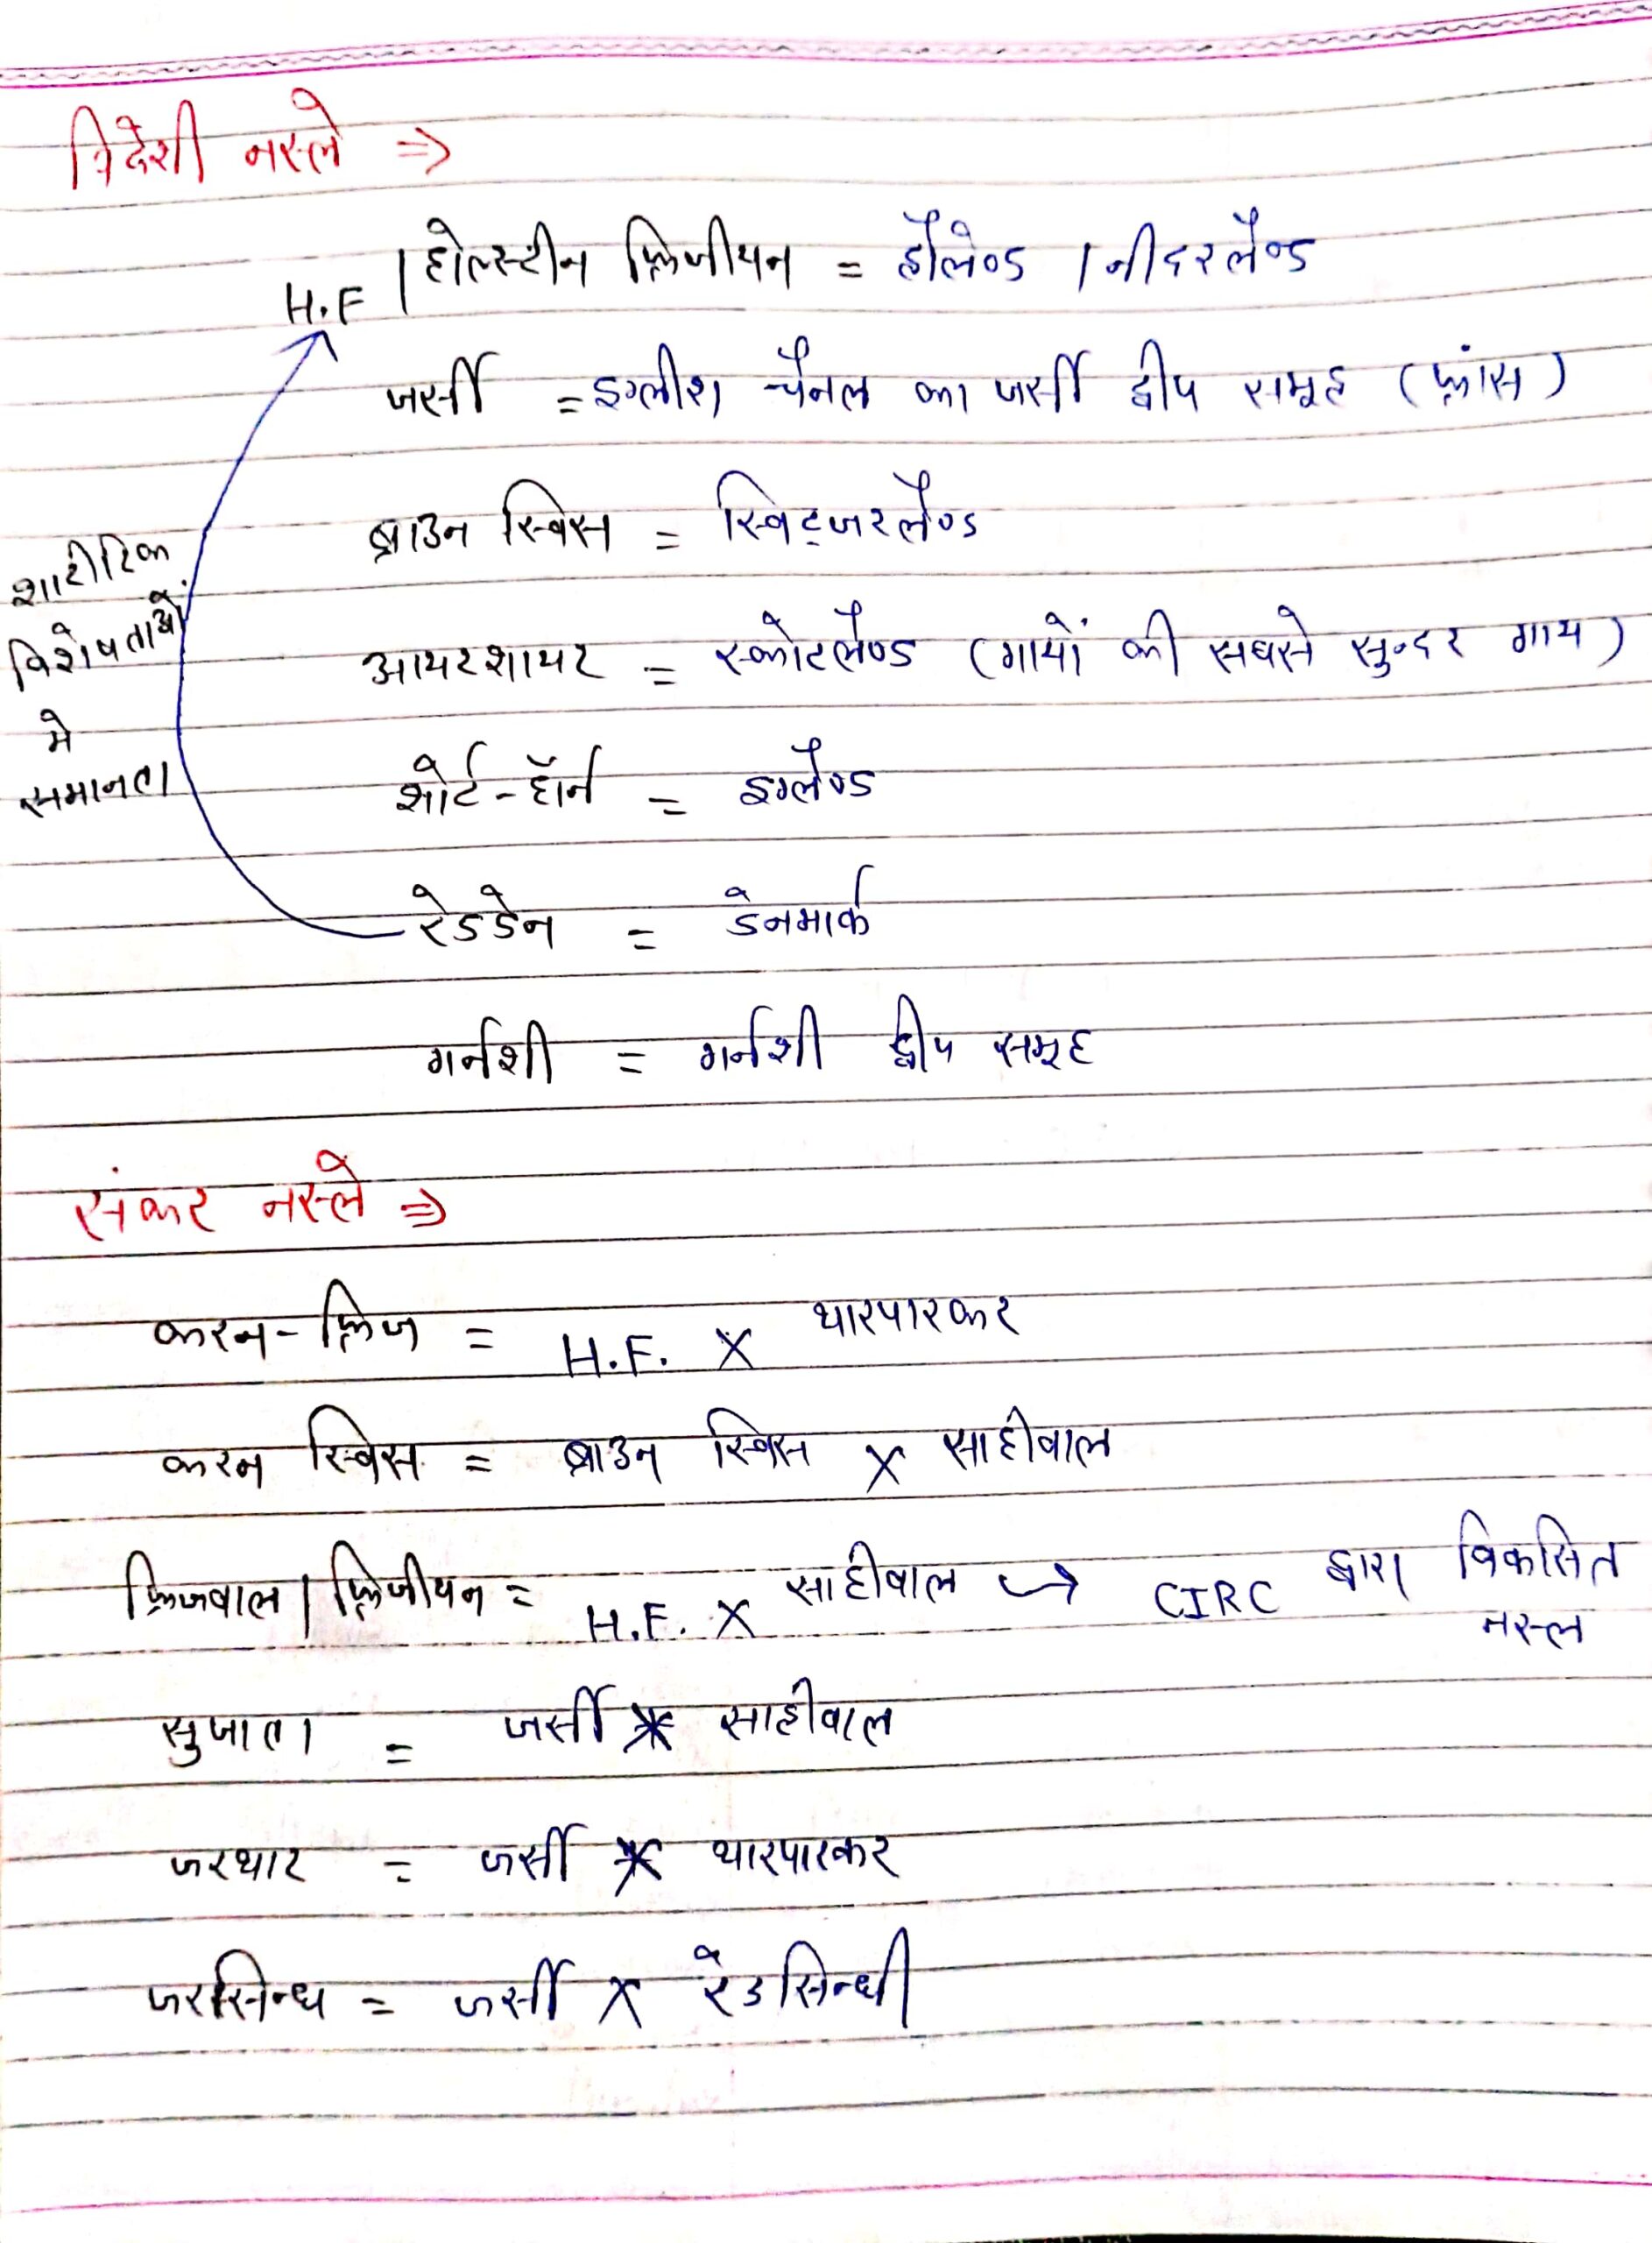 विदेशी नस्ले ⇒
H.F | होल्स्टीन फ्रिजीयन = हॉलेण्ड / नीदरलैण्ड
जर्सी = इग्लीश चैनल का जर्सी द्वीप समूह (फ्रांस)
ब्राउन स्विस = स्विट्जरलैण्ड
आयरशायर = स्कोटलैण्ड (गायों की सबसे सुन्दर गाय)
शोर्ट-हॉर्न = इग्लैण्ड
रेडडेन = डेनमार्क
गर्नशी = गर्नशी द्वीप समूह
शारीरिक
विशेषताओं
मे
समानता
संकर नस्ले ⇒
करन-फ्रिज = H.F. X थारपारकर
करन स्विस = ब्राउन स्विस X साहीवाल
फ्रिजवाल | फ्रिजीयन = H.F. X साहीवाल ↪ CIRC द्वारा विकसित
नस्ल
सुजाता = जर्सी X साहीवाल
जरथार = जर्सी X थारपारकर
जरसिन्ध = जर्सी X रेडसिन्धी